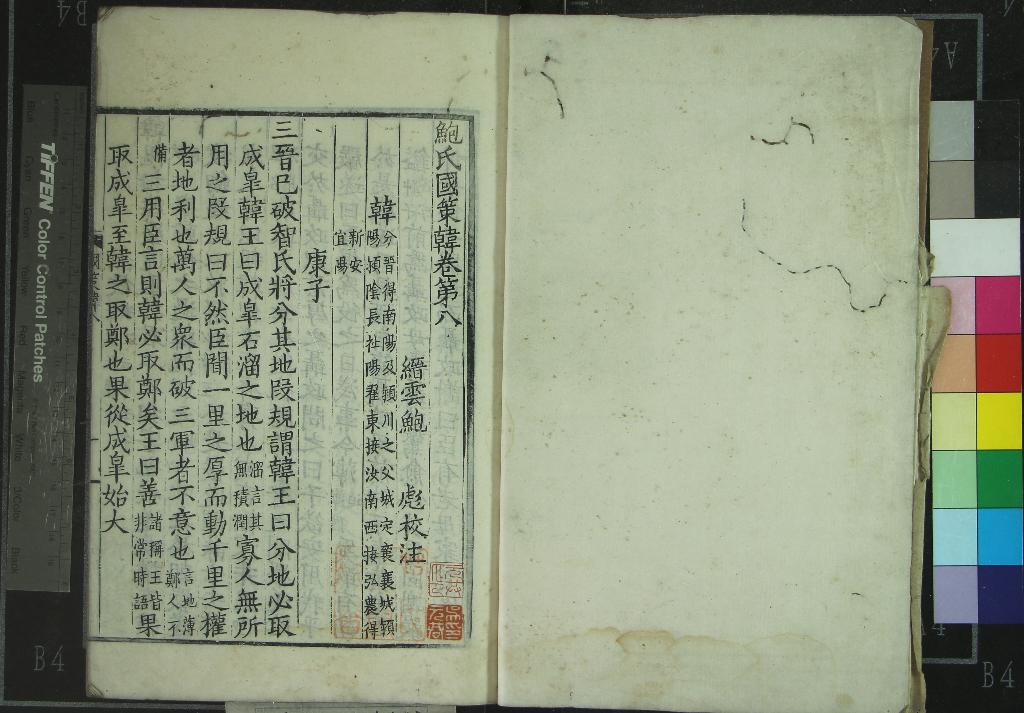 鮑氏國策韓卷第八
縉雲鮑 彪校注
韓 分晉得南陽及潁川之父城定襄襄城潁
陽潁陰長社陽翟東接汝南西接弘農得
新安
宜陽
康子
三晉已破智氏將分其地段規謂韓王曰分地必取
成皐韓王曰成皐石溜之地也 溜言其
無積潤 寡人無所
用之段規曰不然臣聞一里之厚而動千里之權
者地利也萬人之衆而破三軍者不意也 言地薄
鄭人不
備 三用臣言則韓必取鄭矣王曰善 諸稱王皆
非常時語 果
取成皐至韓之取鄭也果從成皐始大
TIFFEN Color Control Patches
B4
B4
A4